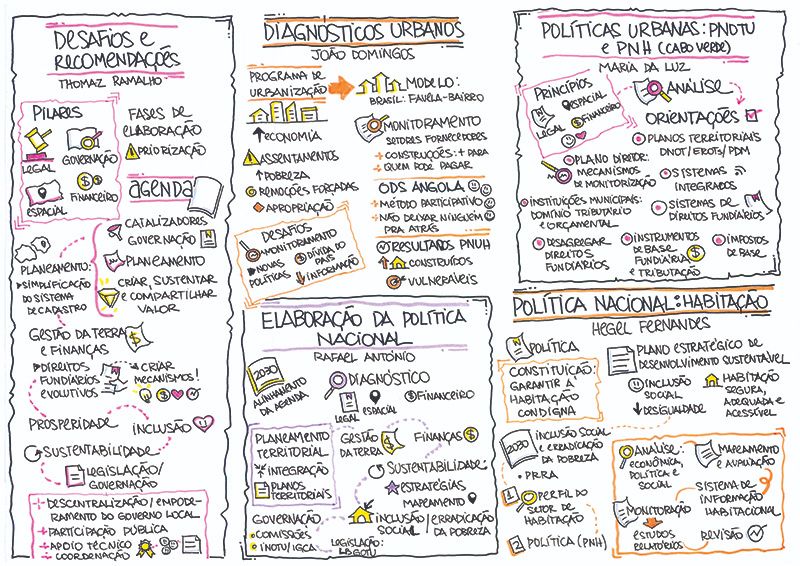 DESAFIOS E
RECOMENDAÇÕES
THOMAZ RAMALHO
PILARES
LEGAL
GOVERNAÇÃO
ESPACIAL
FINANCEIRO
FASES DE
ELABORAÇÃO
PRIORIZAÇÃO
AGENDA
CATALIZADORES
GOVERNAÇÃO
PLANEAMENTO
CRIAR, SUSTENTAR
E COMPARTILHAR
VALOR
PLANEAMENTO:
SIMPLIFICAÇÃO
DO SISTEMA
DE CADASTRO
GESTÃO DA TERRA
E FINANÇAS
DIREITOS
FUNDIÁRIOS
EVOLUTIVOS
CRIAR
MECANISMOS!
PROSPERIDADE
INCLUSÃO
SUSTENTABILIDADE
LEGISLAÇÃO/
GOVERNAÇÃO
DESCENTRALIZAÇÃO/EMPODE-
RAMENTO DO GOVERNO LOCAL
PARTICIPAÇÃO PÚBLICA
APOIO TÉCNICO
COORDENAÇÃO
DIAGNÓSTICOS URBANOS
JOÃO DOMINGOS
PROGRAMA DE
URBANIZAÇÃO
MODELO:
BRASIL: FAVELA-BAIRRO
ECONOMIA
ASSENTAMENTOS
POBREZA
REMOÇÕES FORÇADAS
APROPRIAÇÃO
MONITORAMENTO
SETORES FORNECEDORES
CONSTRUÇÕES: + PARA
QUEM PODE PAGAR
ODS ANGOLA
MÉTODO PARTICIPATIVO
NÃO DEIXAR NINGUÉM
PRA ATRÁS
DESAFIOS
MONITORAMENTO
NOVAS
POLÍTICAS
DÍVIDA DO
PAÍS
INFORMAÇÃO
RESULTADOS PNUH
CONSTRUÍDOS
VULNERÁVEIS
ELABORAÇÃO DA POLÍTICA
NACIONAL
RAFAEL ANTÓNIO
2030
ALINHAMENTO
DA AGENDA
DIAGNÓSTICO
LEGAL
ESPACIAL
FINANCEIRO
PLANEAMENTO
TERRITORIAL
INTEGRAÇÃO
PLANOS
TERRITORIAIS
GESTÃO
DA TERRA
FINANÇAS
SUSTENTABILIDADE:
ESTRATÉGIAS
MAPEAMENTO
GOVERNAÇÃO
COMISSÕES
INOTU/IGCA
INCLUSÃO
SOCIAL
/ERRADICAÇÃO
DA POBREZA
LEGISLAÇÃO:
LBGOTU
POLÍTICAS URBANAS: PNDTU
E PNH (CABO VERDE)
MARIA DA LUZ
PRINCÍPIOS
ESPACIAL
LEGAL
FINANCEIRO
ANÁLISE
ORIENTAÇÕES
PLANOS TERRITORIAIS
DNOT/EROTS/PDM
PLANO DIRETOR:
MECANISMOS
DE MONITORIZAÇÃO
SISTEMAS
INTEGRADOS
INSTITUIÇÕES MUNICIPAIS:
DOMÍNIO TRIBUTÁRIO
E ORÇAMENTAL
SISTEMAS DE
DIREITOS FUNDIÁRIOS
DESAGREGAR
DIREITOS
FUNDIÁRIOS
INSTRUMENTOS
DE BASE
FUNDIÁRIA
E TRIBUTAÇÃO
IMPOSTOS
DE BASE
POLÍTICA NACIONAL: HABITAÇÃO
HEGEL FERNANDES
POLÍTICA
CONSTITUIÇÃO:
GARANTIR A
HABITAÇÃO
CONDIGNA
PLANO ESTRATÉGICO DE
DESENVOLVIMENTO SUSTENTÁVEL
INCLUSÃO
SOCIAL
DESIGUALDADE
HABITAÇÃO
SEGURA,
ADEQUADA E
ACESSÍVEL
2030
INCLUSÃO SOCIAL
E ERRADICAÇÃO
DA POBREZA
PRRA
1
PERFIL DO
SETOR DE
HABITAÇÃO
2 POLÍTICA (PNH)
ANÁLISE:
ECONÔMICA,
POLÍTICA E
SOCIAL
MAPEAMENTO
E AVALIAÇÃO
MONITORAÇÃO
SISTEMA DE
INFORMAÇÃO
HABITACIONAL
ESTUDOS
RELATÓRIOS
REVISÃO